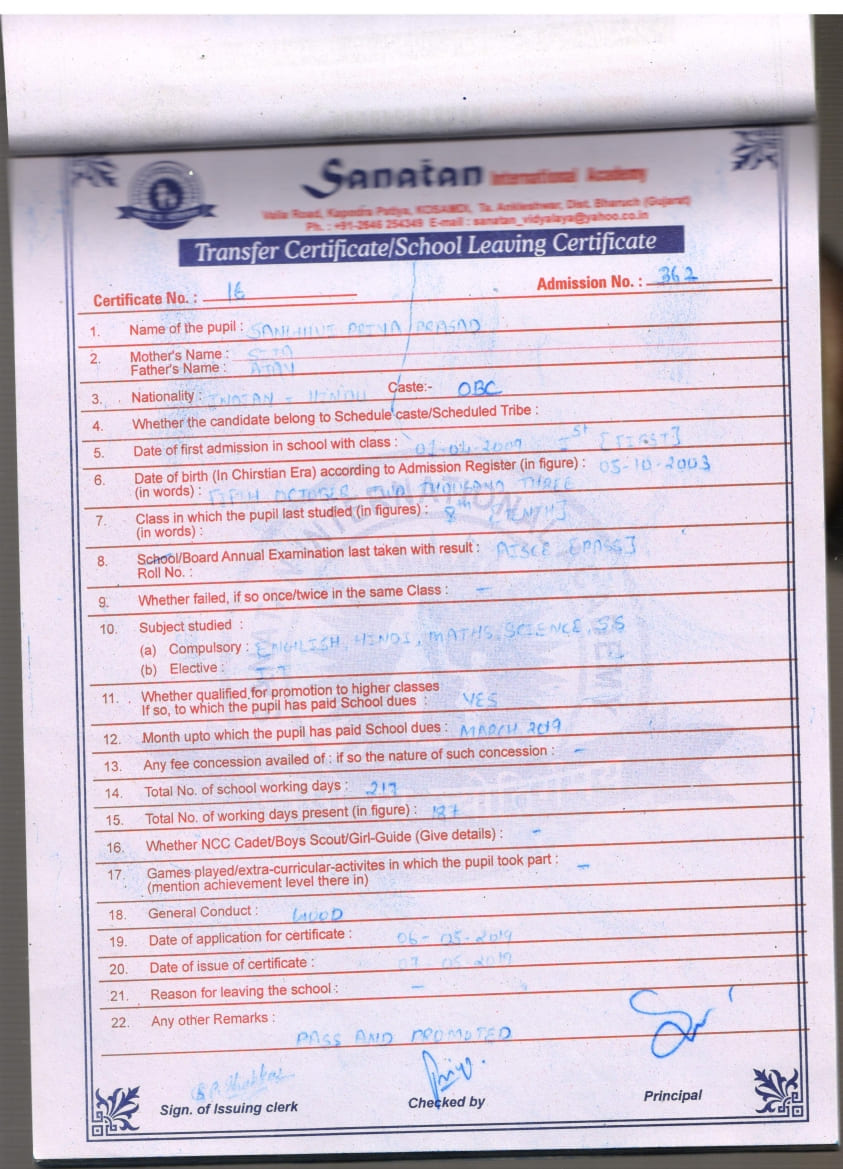 Sanatan International Academy
Valia Road, Kapodra Patiya, KOSAMDI, Ta. Ankleshwar, Dist. Bharuch (Gujarat)
Ph. : +91-2646 254349 E-mail : sanatan_vidyalaya@yahoo.co.in
Transfer Certificate/School Leaving Certificate
Certificate No. : 16 Admission No. : 362
1. Name of the pupil : PRIYA PRASAD
2. Mother's Name :
Father's Name : AJAY
3. Nationality : INDIAN - HINDU Caste:- OBC
4. Whether the candidate belong to Schedule caste/Scheduled Tribe :
5. Date of first admission in school with class : 01-04-2009 Ist [FIRST]
6. Date of birth (In Chirstian Era) according to Admission Register (in figure) : 05-10-2003
(in words) : FIFTH OCTOBER TWO THOUSAND THREE
7. Class in which the pupil last studied (in figures) : 8th
(in words) :
8. School/Board Annual Examination last taken with result : AISCE [PASS]
Roll No. :
9. Whether failed, if so once/twice in the same Class : -
10. Subject studied :
(a) Compulsory : ENGLISH, HINDI, MATHS, SCIENCE, SS
(b) Elective :
11. Whether qualified for promotion to higher classes
If so, to which the pupil has paid School dues : YES
12. Month upto which the pupil has paid School dues : MARCH 2019
13. Any fee concession availed of : if so the nature of such concession : -
14. Total No. of school working days : 217
15. Total No. of working days present (in figure) : 187
16. Whether NCC Cadet/Boys Scout/Girl-Guide (Give details) : -
17. Games played/extra-curricular-activites in which the pupil took part : -
(mention achievement level there in)
18. General Conduct : GOOD
19. Date of application for certificate : 06-05-2019
20. Date of issue of certificate : 07-05-2019
21. Reason for leaving the school : -
22. Any other Remarks :
PASS AND PROMOTED
Sign. of Issuing clerk Checked by Principal